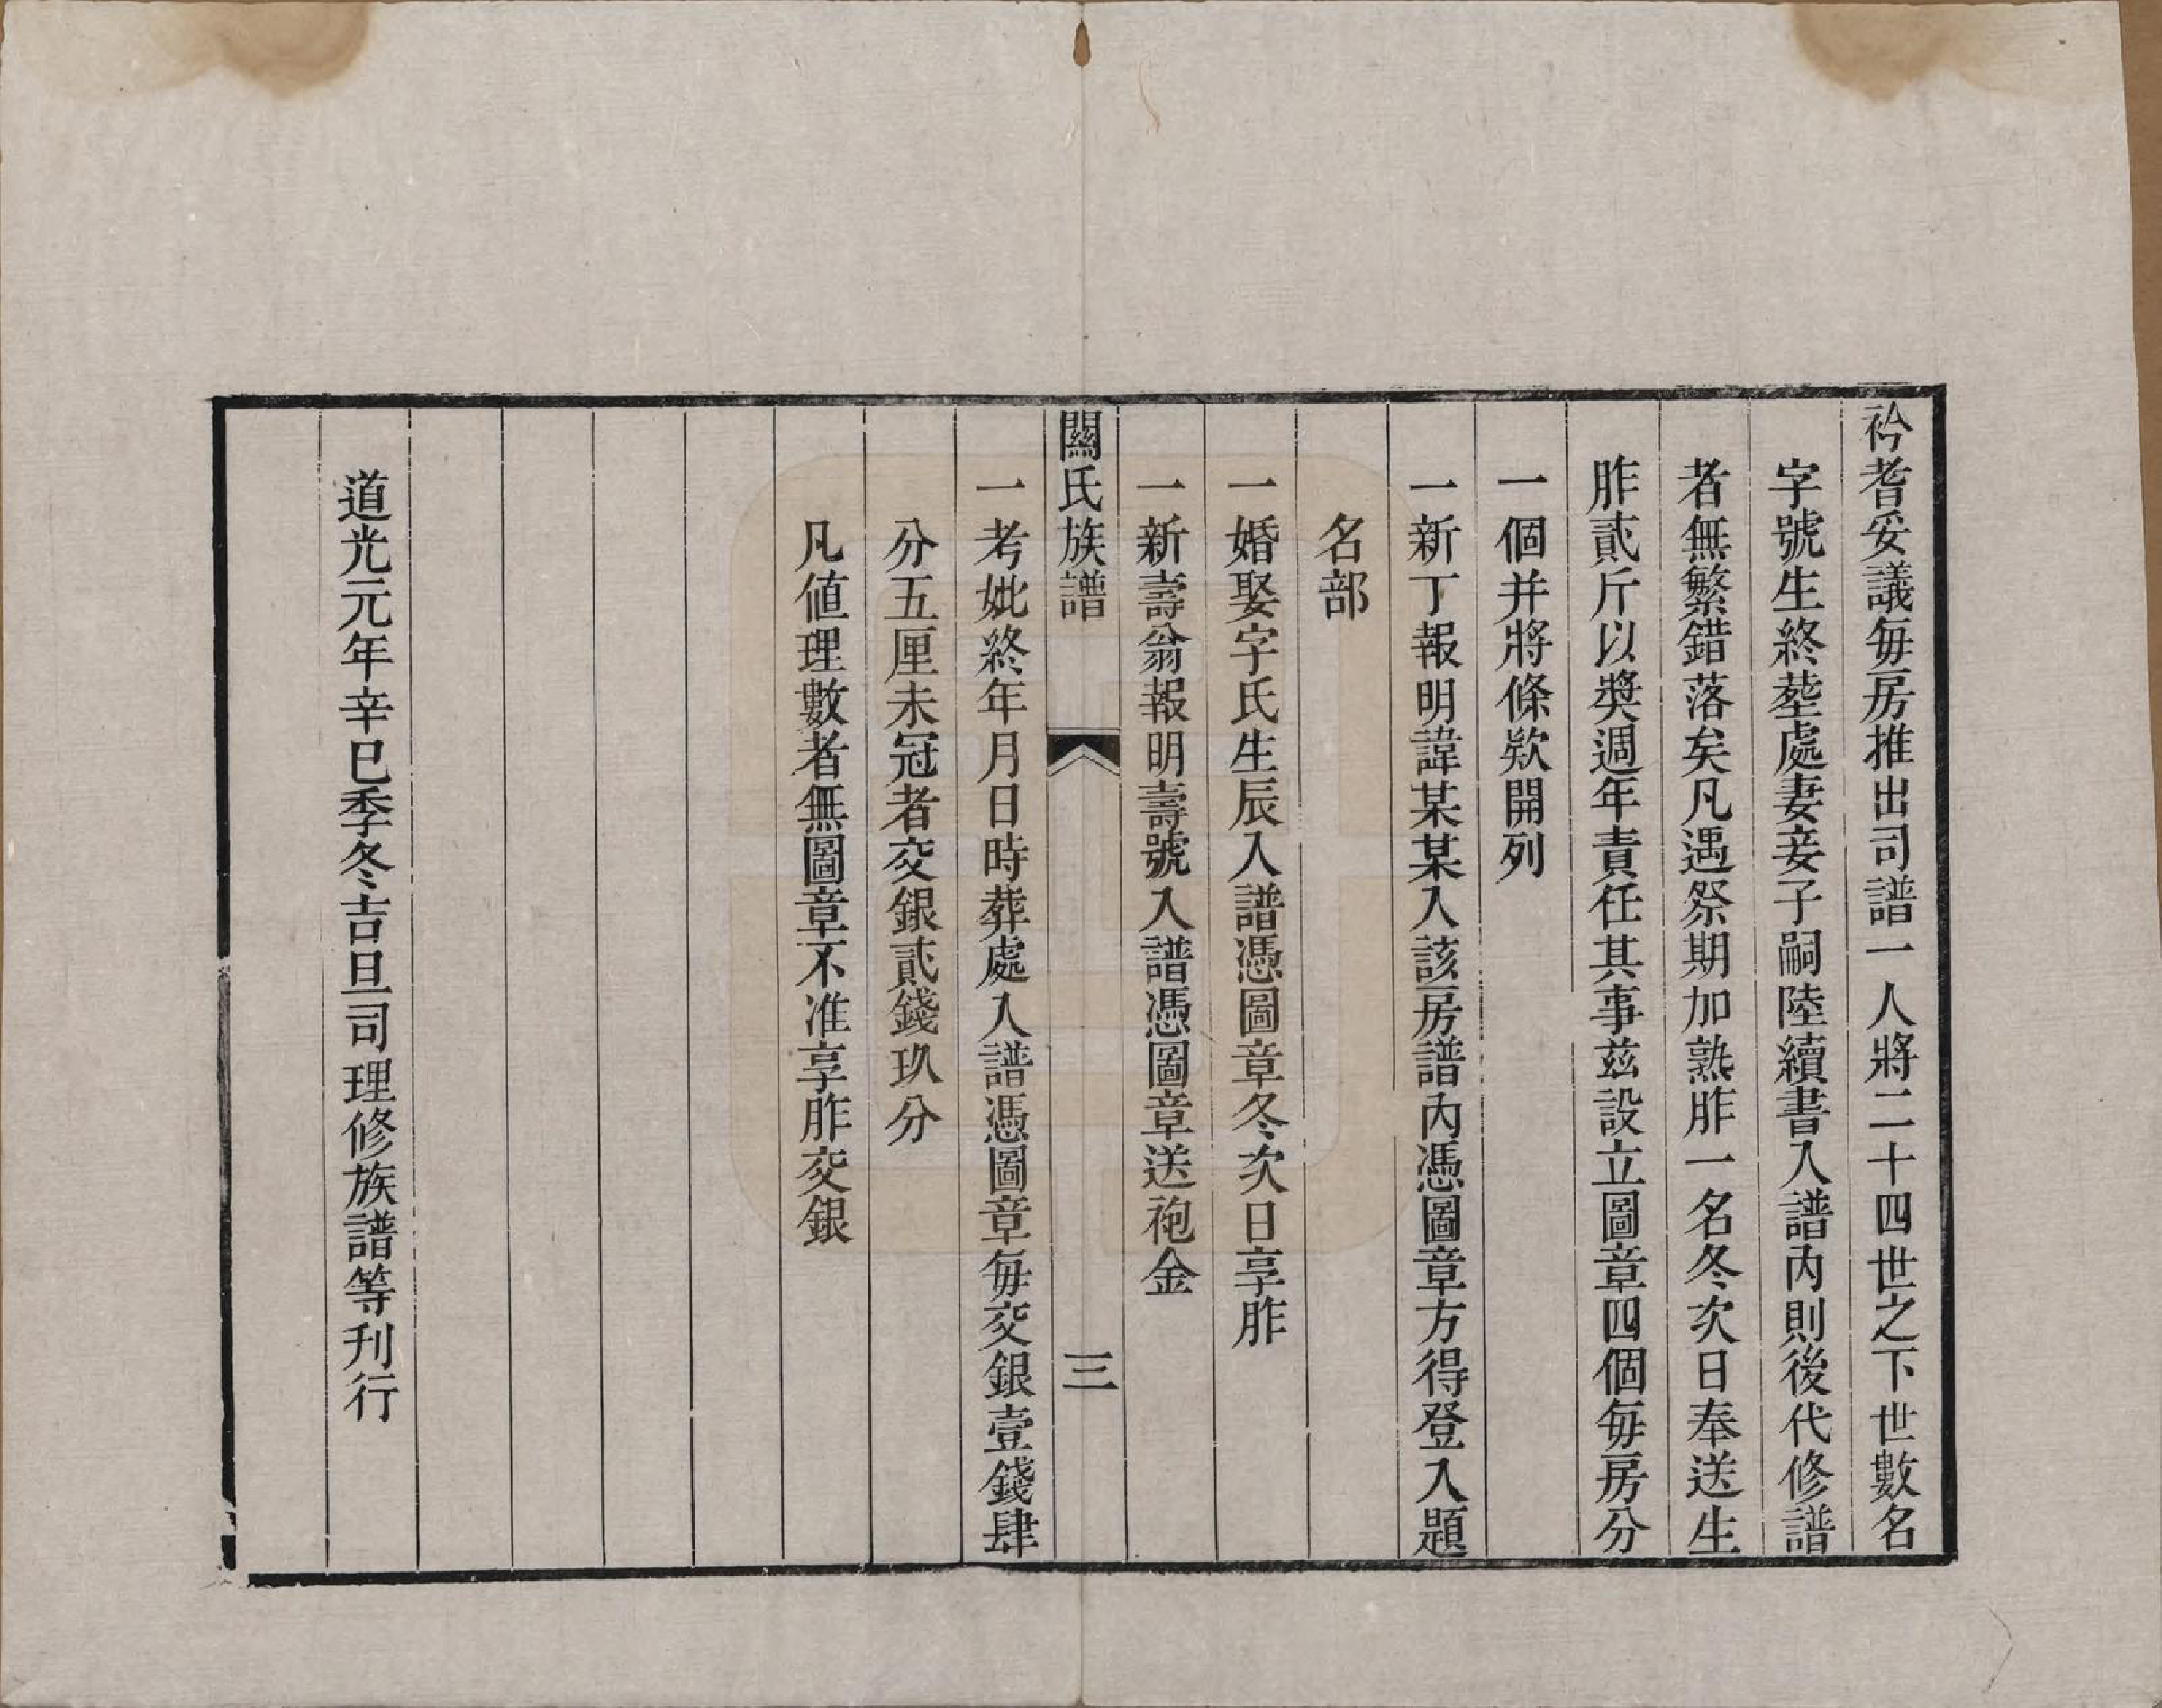 衿耆妥議每房推出司譜一人將二十四世之下世數名
字號生終塟處妻妾子嗣陸續書入譜內則後代修譜
者無繁錯落矣凡遇祭期加熟胙一名冬次日奉送生
胙貳斤以奬週年責任其事兹設立圖章四個每房分
一個并將條欵開列
一新丁報明諱某某入該房譜內憑圖章方得登入題
名部
一婚娶字氏生辰入譜憑圖章冬次日享胙
一新壽翁報明壽號入譜憑圖章送袍金
關氏族譜 三
一考妣終年月日時葬處入譜憑圖章每交銀壹錢肆
分五厘未冠者交銀貳錢玖分
凡値理數者無圖章不准享胙交銀
道光元年辛巳季冬吉旦司理修族譜等刋行